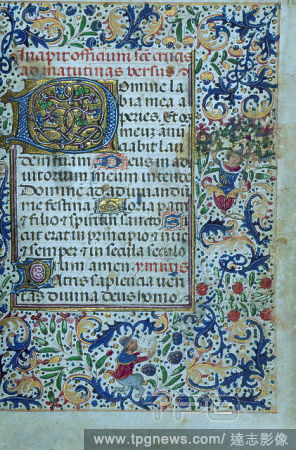 Incipit officium sce crucis
ad matutinas versus
Domine la
bia mea a
peries. Et os
meum annũ
ciabit lau
dem tuam. Deus in ad
iutorium meum intende
Domine ad adiuuandũ
me festina. Gloria patri
et filio et spiritui sancto. S
icut erat in principio et nũc
et semper et in secula seculo
rum amen. ymnus
Patris sapiencia veri
tas diuina deus homo.
www.tpgnews.com/ 達志影像